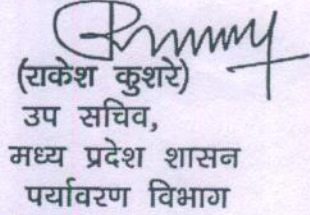 (राकेश कुशरे)
उप सचिव,
मध्य प्रदेश शासन
पर्यावरण विभाग